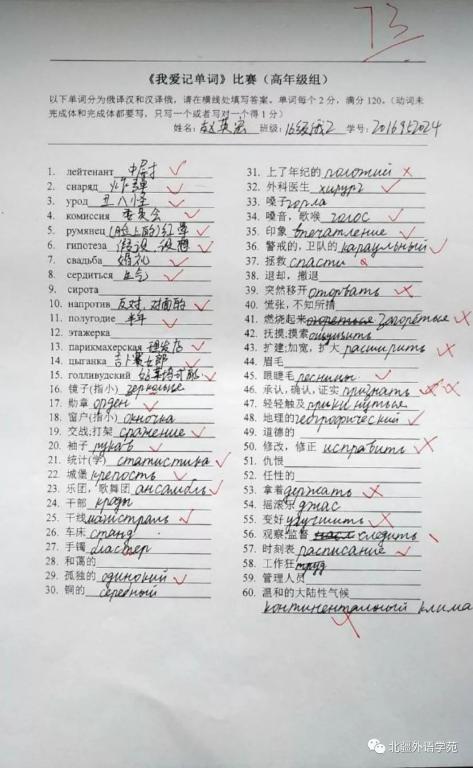 73
《我爱记单词》比赛（高年级组）
以下单词分为俄译汉和汉译俄，请在横线处填写答案。单词每个2分，满分120。（动词未
完成体和完成体都要写，只写一个或者写对一个得1分）
姓名: 赵英宏 班级: 16级俄2 学号: 2016952024
1. лейтенант 中尉
2. снаряд 炸弹
3. урод 丑八怪
4. комиссия 委员会
5. румянец (脸上的)红晕
6. гипотеза 假设 设想
7. свадьба 婚礼
8. сердиться 生气
9. сирота
10. напротив 反对，对面的
11. полугодие 半年
12. этажерка
13. парикмахерская 理发店
14. цыганка 吉卜赛女郎
15. голливудский
16.镜子(指小) зеркальце
17. 勋章 орден
18. 窗户(指小) окночка
19. 交战,打架 сражение
20. 袖子 рукав
21. 统计(学) статистика
22. 城堡 крепость
23. 乐团，歌舞团 ансамбль
24. 干部 кроди
25. 干线 магистраль
26. 车床 станд
27. 手镯 бластер
28. 和蔼的
29. 孤独的 одинокий
30. 铜的 серебный
31. 上了年纪的 положий
32. 外科医生 хирург
33. 嗓子 горла
34. 嗓音，歌喉 голос
35. 印象 впечатление
36. 警戒的, 卫队的 караульный
37. 拯救 спасти
38. 退却，撤退
39. 突然移开 оторвать
40. 慌张, 不知所措
41. 燃烧起来 загореться
42. 抚摸,摸索 ощущить
43. 扩建;加宽, 扩大 расширить
44. 眉毛
45. 眼睫毛 ресницы
46. 承认, 确认, 证实 признать
47. 轻轻触及
48. 地理的 географический
49. 道德的
50. 修改，修正 исправить
51. 仇恨
52. 任性的
53. 拿着 держать
54. 摇滚乐 джас
55. 变好 улучшить
56. 观察,监督 следить
57. 时刻表 расписание
58. 工作狂 труд
59. 管理人员
60. 温和的大陆性气候
континентальный клима
北疆外语学苑